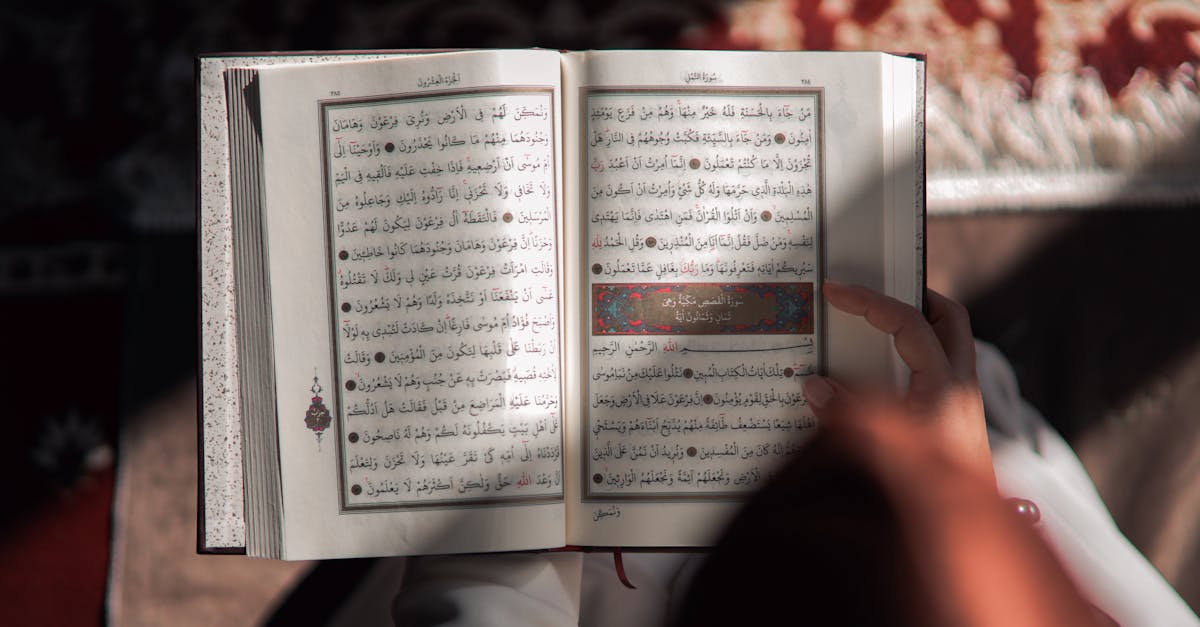 سُورَةُ النَّمْلِ ٣٨٤
مَنْ جَٓاءَ بِالْحَسَنَةِ فَلَهُ خَيْرٌ مِنْهَا وَهُمْ مِنْ فَزَعٍ يَوْمَئِذٍ
اٰمِنُونَ وَمَنْ جَٓاءَ بِالسَّيِّئَةِ فَكُبَّتْ وُجُوهُهُمْ فِى النَّارِ هَلْ
تُجْزَوْنَ اِلَّا مَا كُنْتُمْ تَعْمَلُونَ اِنَّمَٓا اُمِرْتُ اَنْ اَعْبُدَ رَبَّ
هٰذِهِ الْبَلْدَةِ الَّذِى حَرَّمَهَا وَلَهُ كُلُّ شَىْءٍ وَاُمِرْتُ اَنْ اَكُونَ مِنَ
الْمُسْلِمِينَ وَاَنْ اَتْلُوَا الْقُرْاٰنَ فَمَنِ اهْتَدٰى فَاِنَّمَا يَهْتَدِى
لِنَفْسِهِ وَمَنْ ضَلَّ فَقُلْ اِنَّمَٓا اَنَا مِنَ الْمُنْذِرِينَ وَقُلِ الْحَمْدُ لِلّٰهِ
سَيُرِيكُمْ اٰيَاتِهِ فَتَعْرِفُونَهَا وَمَا رَبُّكَ بِغَافِلٍ عَمَّا تَعْمَلُونَ
سُورَةُ الْقَصَصِ مَكِّيَّةٌ وَهِىَ
ثَمَانٍ وَثَمَانُونَ اٰيَةً
بِسْمِ اللّٰهِ الرَّحْمٰنِ الرَّحِيمِ
طٰسٓمٓ تِلْكَ اٰيَاتُ الْكِتَابِ الْمُبِينِ نَتْلُوا عَلَيْكَ مِنْ نَبَاِ مُوسٰى
وَفِرْعَوْنَ بِالْحَقِّ لِقَوْمٍ يُؤْمِنُونَ اِنَّ فِرْعَوْنَ عَلَا فِى الْاَرْضِ وَجَعَلَ
اَهْلَهَا شِيَعًا يَسْتَضْعِفُ طَٓائِفَةً مِنْهُمْ يُذَبِّحُ اَبْنَٓاءَهُمْ وَيَسْتَحْيِ
اِنَّهُ كَانَ مِنَ الْمُفْسِدِينَ وَنُرِيدُ اَنْ نَمُنَّ عَلَى الَّذِينَ
الْاَرْضِ وَنَجْعَلَهُمْ اَئِمَّةً وَنَجْعَلَهُمُ الْوَارِثِينَ
وَنُمَكِّنَ
اَلْجُزْءُ الْعِشْرُونَ ٣٨٥
وَنُمَكِّنَ لَهُمْ فِى الْاَرْضِ وَنُرِىَ فِرْعَوْنَ وَهَامَانَ
وَجُنُودَهُمَا مِنْهُمْ مَا كَانُوا يَحْذَرُونَ وَاَوْحَيْنَٓا اِلٰٓى
اُمِّ مُوسٰٓى اَنْ اَرْضِعِيهِ فَاِذَا خِفْتِ عَلَيْهِ فَاَلْقِيهِ فِى الْيَمِّ
وَلَا تَخَافِى وَلَا تَحْزَنِى اِنَّا رَٓادُّوهُ اِلَيْكِ وَجَاعِلُوهُ مِنَ
الْمُرْسَلِينَ فَالْتَقَطَهُٓ اٰلُ فِرْعَوْنَ لِيَكُونَ لَهُمْ عَدُوًّا
وَحَزَنًا اِنَّ فِرْعَوْنَ وَهَامَانَ وَجُنُودَهُمَا كَانُوا خَاطِـِٔينَ
وَقَالَتِ امْرَاَتُ فِرْعَوْنَ قُرَّتُ عَيْنٍ لِى وَلَكَ لَا تَقْتُلُوهُ
عَسٰٓى اَنْ يَنْفَعَنَٓا اَوْ نَتَّخِذَهُ وَلَدًا وَهُمْ لَا يَشْعُرُونَ
وَاَصْبَحَ فُؤٰادُ اُمِّ مُوسٰى فَارِغًا اِنْ كَادَتْ لَتُبْدِى بِهِ لَوْلَٓا
اَنْ رَبَطْنَا عَلٰى قَلْبِهَا لِتَكُونَ مِنَ الْمُؤْمِنِينَ وَقَالَتْ
لِاُخْتِهِ قُصِّيهِ فَبَصُرَتْ بِهِ عَنْ جُنُبٍ وَهُمْ لَا يَشْعُرُونَ
وَحَرَّمْنَا عَلَيْهِ الْمَرَاضِعَ مِنْ قَبْلُ فَقَالَتْ هَلْ اَدُلُّكُمْ
عَلٰٓى اَهْلِ بَيْتٍ يَكْفُلُونَهُ لَكُمْ وَهُمْ لَهُ نَاصِحُونَ
فَرَدَدْنَاهُ اِلٰٓى اُمِّهِ كَىْ تَقَرَّ عَيْنُهَا وَلَا تَحْزَنَ وَلِتَعْلَمَ
اَنَّ وَعْدَ اللّٰهِ حَقٌّ وَلٰكِنَّ اَكْثَرَهُمْ لَا يَعْلَمُونَ